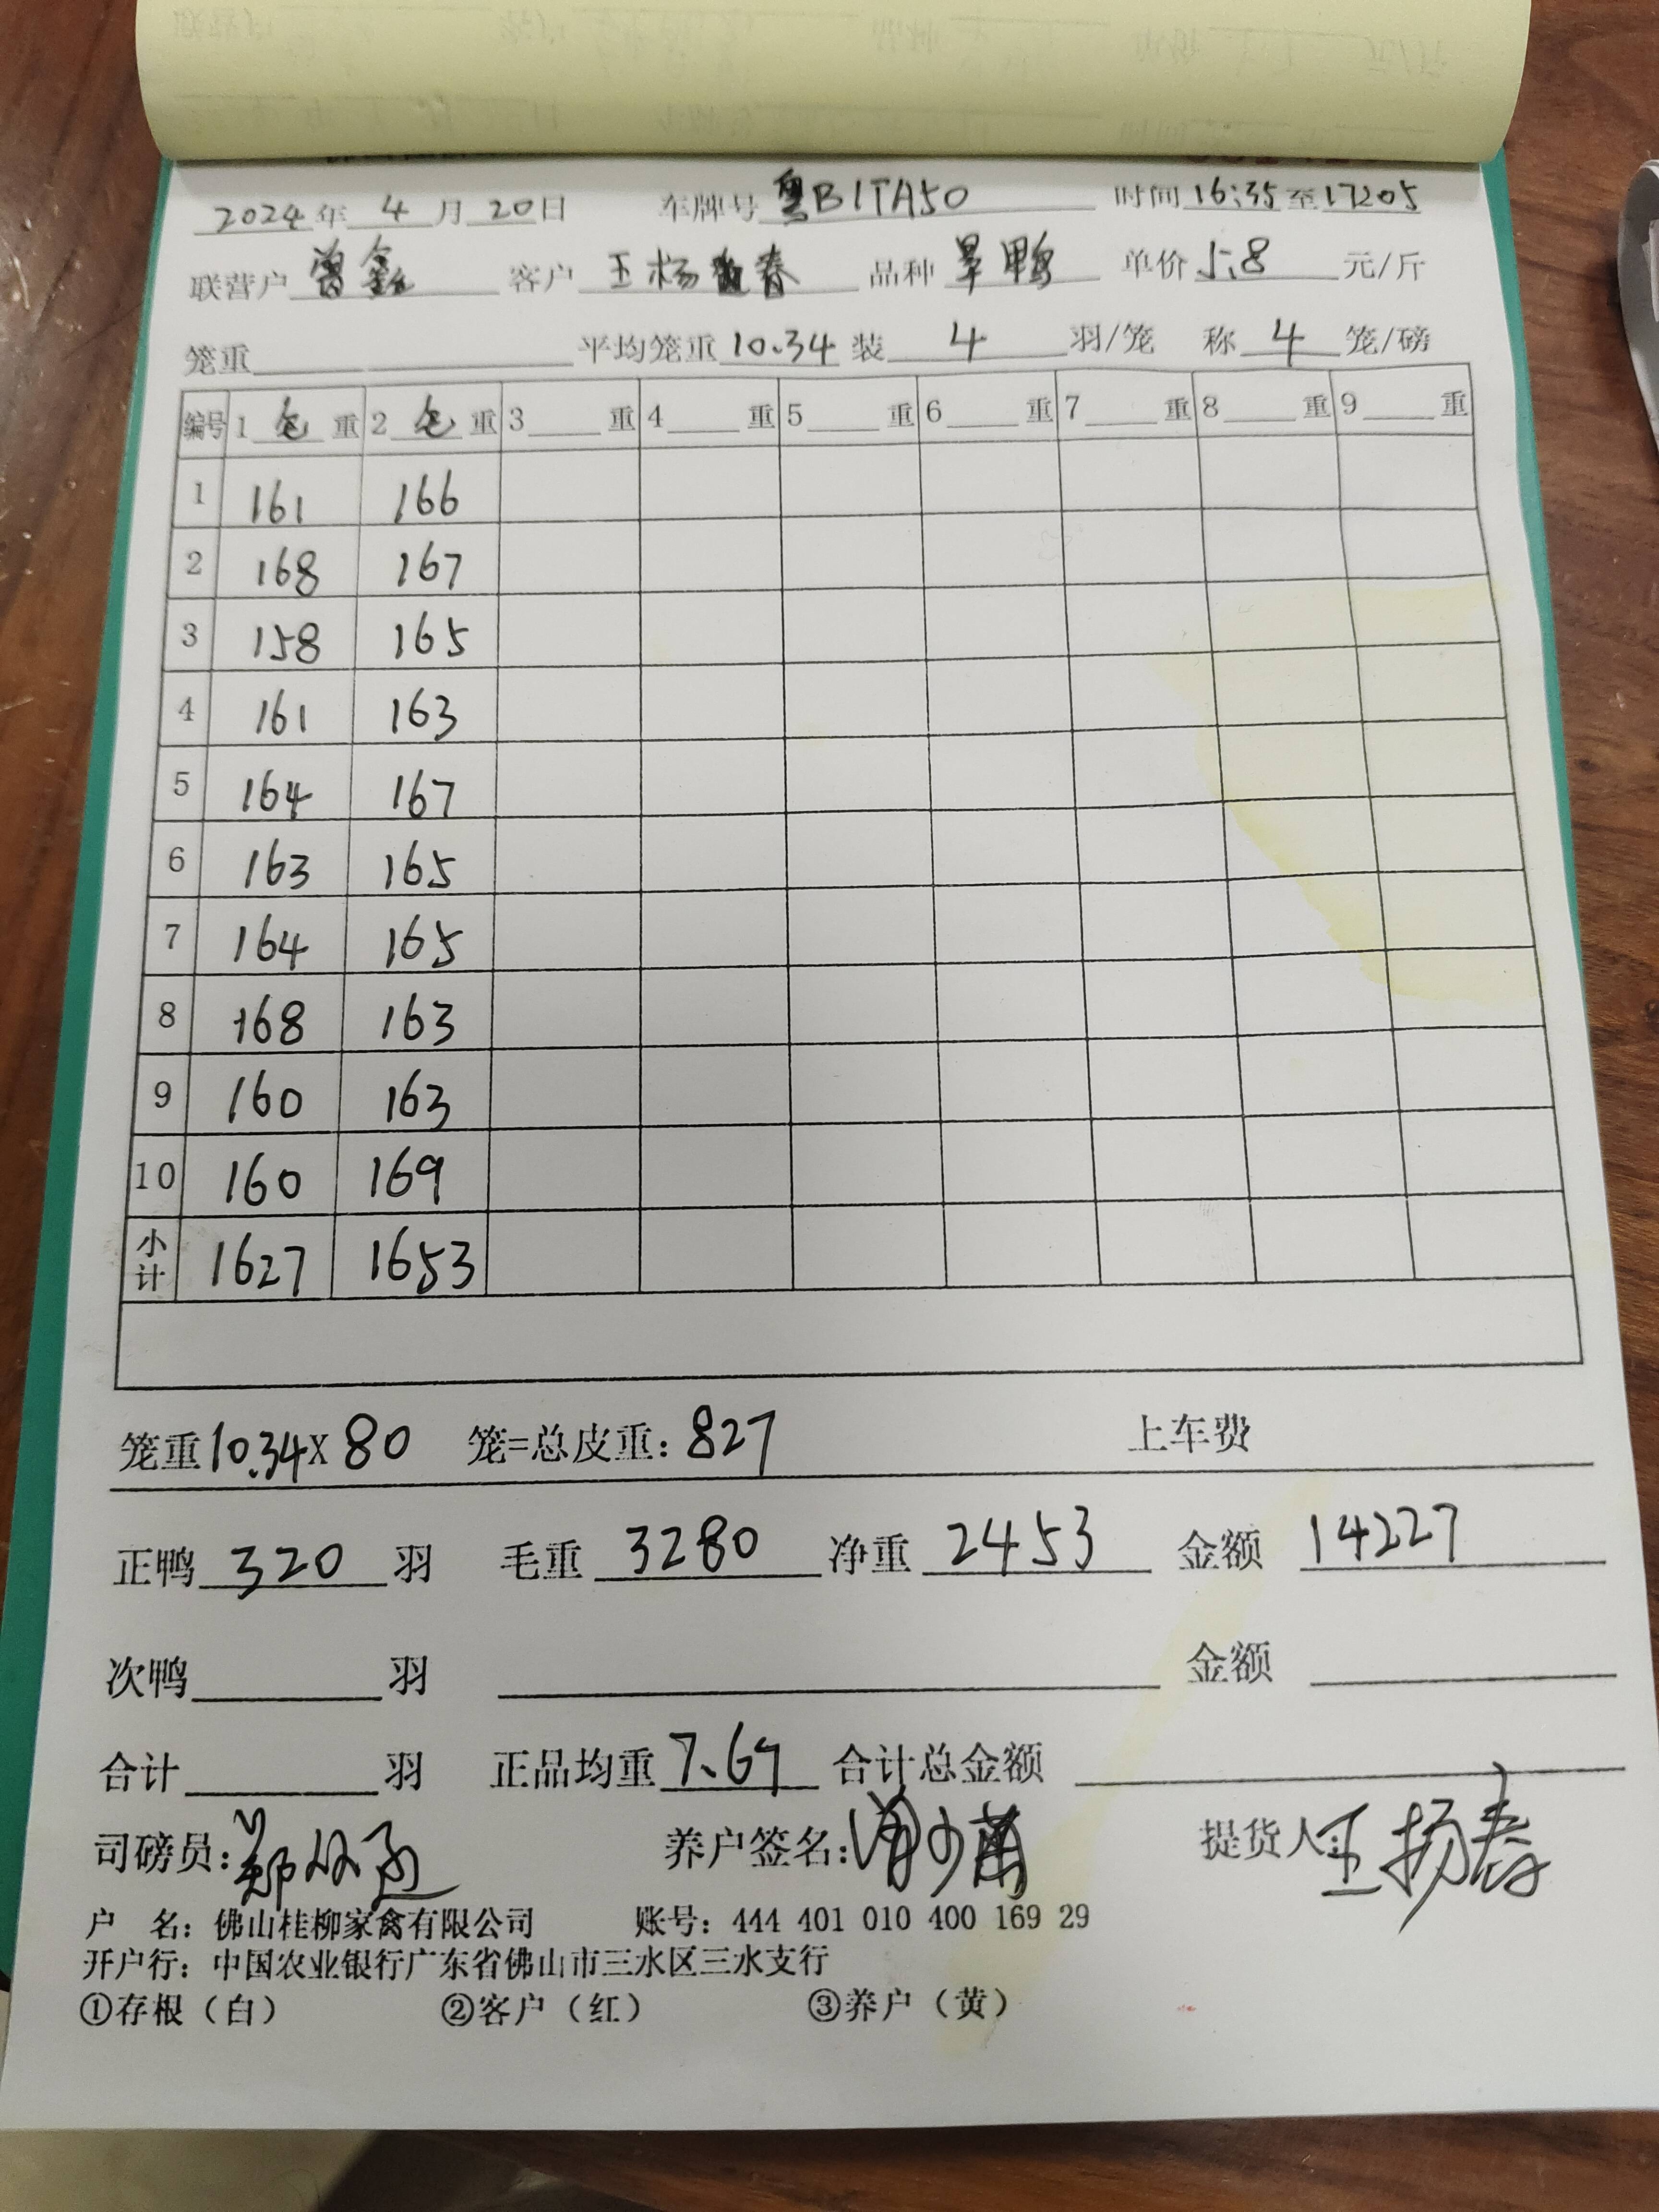 2024年 4 月 20日 车牌号 粤B1TA50 时间 16:35 至 17:05
联营户 曾鑫 客户 王杨春 品种 旱鸭 单价 5.8 元/斤
笼重 平均笼重 10.34 装 4 羽/笼 称 4 笼/磅
编号 1 毛 重 2 毛 重 3 重 4 重 5 重 6 重 7 重 8 重 9 重
1 161 166
2 168 167
3 158 165
4 161 163
5 164 167
6 163 165
7 164 165
8 168 163
9 160 163
10 160 169
小计 1627 1653
笼重 10.34 X 80 笼=总皮重: 827 上车费
正鸭 320 羽 毛重 3280 净重 2453 金额 14227
次鸭 羽 金额
合计 羽 正品均重 7.67 合计总金额
司磅员: 养户签名: 提货人: 王扬春
户 名: 佛山桂柳家禽有限公司 账号: 444 401 010 400 169 29
开户行: 中国农业银行广东省佛山市三水区三水支行
①存根（白） ②客户（红） ③养户（黄）